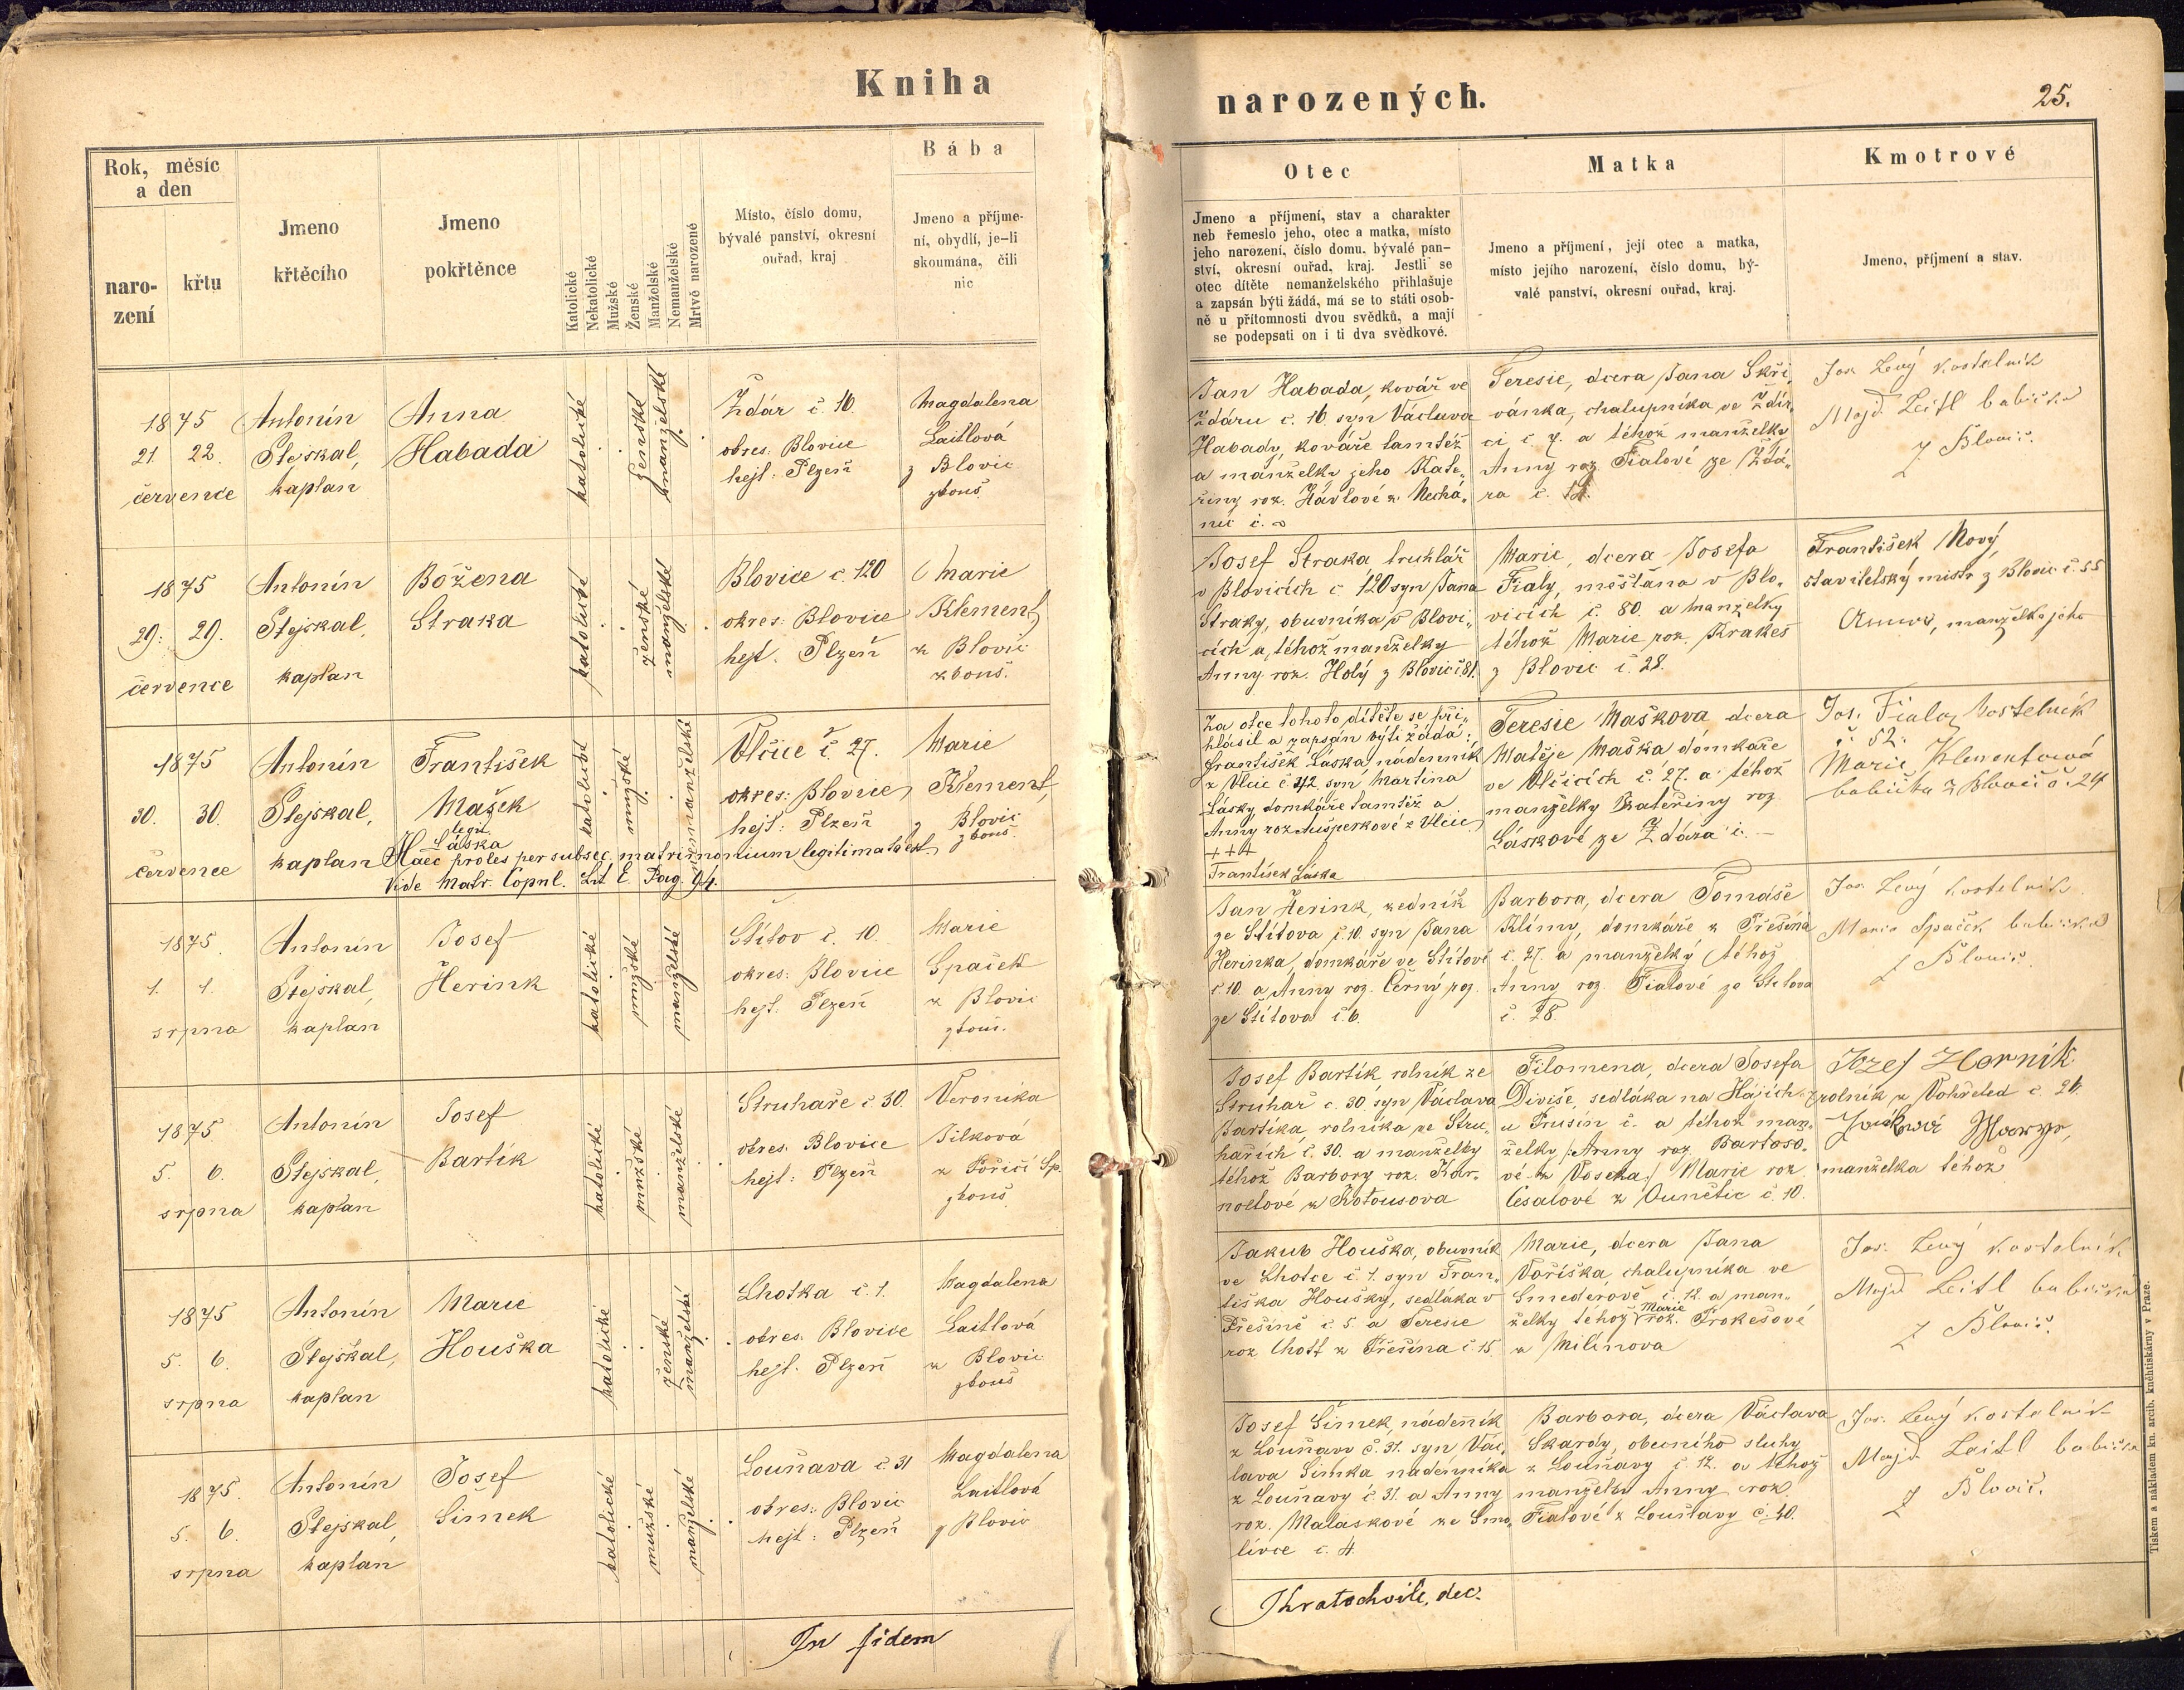 Kniha
Rok, měsíc
a den
naro-
zení
křtu
Jmeno
křtěcího
Jmeno
pokřtěnce
Katolické
Nekatolické
Mužské
Ženské
Manželské
Nemanželské
Mrtvě narozené
Místo, číslo domu,
bývalé panství, okresní
ouřad, kraj
Bába
Jmeno a příjme-
ní, obydlí, je-li
skoumána, čili
nic
1875
21. 22.
července
Antonín
Stejskal,
kaplan
Anna
Habada
katolické
ženské
manželské
Ždár č. 16.
okres: Blovice
hejt: Plzeň
Magdalena
Laitlová
z Blovic
zkouš.
1875
29. 29.
července
Antonín
Stejskal,
kaplan
Božena
Straka
katolické
ženské
manželské
Blovice č. 120
okres: Blovice
hejt. Plzeň
Marie
Klement,
z Blovic
zkouš.
1875
30. 30.
července
Antonín
Stejskal,
kaplan
František
Mašek
legit.
Láska
katolické
mužské
nemanželské
Vlčice č. 27.
okres: Blovice
hejt: Plzeň
Marie
Klement,
z Blovic
zkouš.
Haec proles per subsec. matrimonium legitimata est
Vide Matr. Copul. Lit. E. Pag. 94.
1875
1. 1.
srpna
Antonín
Stejskal,
kaplan
Josef
Herink
katolické
mužské
manželské
Štítov č. 10.
okres: Blovice
hejt. Plzeň
Marie
Spaček
z Blovic
zkouš.
1875
5. 6.
srpna
Antonín
Stejskal,
kaplan
Josef
Bartík
katolické
mužské
manželské
Struhaře č. 30.
okres. Blovice
hejt: Plzeň
Veronika
Jilková
z Poříčí Sp.
zkouš.
1875
5. 6.
srpna
Antonín
Stejskal,
kaplan
Marie
Houška
katolické
ženské
manželské
Lhotka č. 1.
okres. Blovice
hejt: Plzeň
Magdalena
Laitlová
z Blovic
zkouš
1875.
5. 6.
srpna
Antonín
Stejskal,
kaplan
Josef
Šimek
katolické
mužské
manželské
Louňava č. 31
okres: Blovic
hejt: Plzeň
Magdalena
Laitlová
z Blovic
In fidem
narozených.
25.
Otec
Jmeno a příjmení, stav a charakter
neb řemeslo jeho, otec a matka, místo
jeho narození, číslo domu, bývalé pan-
ství, okresní ouřad, kraj. Jestli se
otec dítěte nemanželského přihlašuje
a zapsán býti žádá, má se to státi osob-
ně u přítomnosti dvou svědků, a mají
se podepsati on i ti dva svědkové.
Matka
Jmeno a příjmení, její otec a matka,
místo jejího narození, číslo domu, bý-
valé panství, okresní ouřad, kraj.
Kmotrové
Jmeno, příjmení a stav.
Jan Habada, kovář ve
Ždáru č. 16 syn Václava
Habady, kováře tamtéž
a manželky jeho Kate-
řiny roz. Hávlové z Nechá-
nic č.
Teresie, dcera Jana Skři-
vánka, chalupníka ve Ždír-
ci č. 7. a téhož manželky
Anny roz. Fialové ze Ždá-
ra č.
Jos. Levý kostelník
Majd. Leitl babička
z Blovic.
Josef Straka, truhlář
v Blovicích č. 120 syn Jana
Straky, obuvníka v Blovi-
cích a téhož manželky
Anny roz. Holý z Blovic č. 81.
Marie, dcera Josefa
Fialy, měšťana v Blo-
vicích č. 80. a manželky
téhož Marie roz. Krakeš
z Blovic č. 28.
František Nový,
stavitelský mistr z Blovic č. 55
Anna, manželka jeho
Za otce tohoto dítěte se při-
hlásil a zapsán býti žádá:
František Láska, nádenník
z Vlčic č. 42. syn Martina
Lásky, domkáře tamtéž a
Anny roz. Aušperkové z Vlčic
+++
František Láska
Teresie Maškova dcera
Matěje Maška domkáře
ve Vlčicích č. 27. a téhož
manželky Kateřiny roz.
Láskové ze Ždára č. –
Jos. Fiala, kostelník
č. 52.
Marie Klementová
babička z Blovic č. 24
Jan Herink, zedník
ze Štítova č. 10. syn Jana
Herinka, domkáře ve Štítově
č. 10. a Anny roz. Černý poz.
ze Štítova č. 6.
Barbora, dcera Tomáše
Klímy, domkáře z Přešína
č. 27. a manželky téhož
Anny roz. Fialové ze Štítova
č. 28.
Jos. Levý kostelník
Marie Spaček babička
z Blovic.
Josef Bartík, rolník ze
Struhař č. 30. syn Václava
Bartíka rolníka ze Stru-
hařích č. 30. a manželky
téhož Barbory roz. Kar-
noltové z Kotousova
Filomena, dcera Josefa
Diviše, sedláka na Hájích
u Prusin č. a téhož man-
želky /: Anny roz. Bartoso-
vé z Voseka :/ Marie roz.
Česalové z Ounětic č. 10.
Jozef Hornik
rolník z Vohřeled č. 26.
manželka téhož
Jakub Houška, obuvník
ve Lhotce č. 1. syn Fran-
tiška Houšky, sedláka v
Přešíně č. 5. a Teresie
roz. Chott z Přešína č. 15.
Marie, dcera Jana
Voříška, chalupníka ve
Smederově č. 12. a man-
želky téhož Marie roz. Prokešové
z Milínova
Jos. Levý kostelník
Majd Leitl babička
z Blovic.
Josef Šimek, nádeník
z Louňavy č. 31. syn Vác-
lava Šimka nádenníka
z Louňavy č. 31. a Anny
roz. Malaskové ze Smo-
lívce č. 4.
Barbora, dcera Václava
Skardy, obecního sluhy
z Louňavy č. 12. a téhož
manželky Anny roz.
Fialové z Louňavy č. 10.
Jos. Levý kostelník
Majd Laitl babička
z Blovic.
Kratochvile, dec.
Tiskem a nákladem kn. arcib. knihtiskárny v Praze.